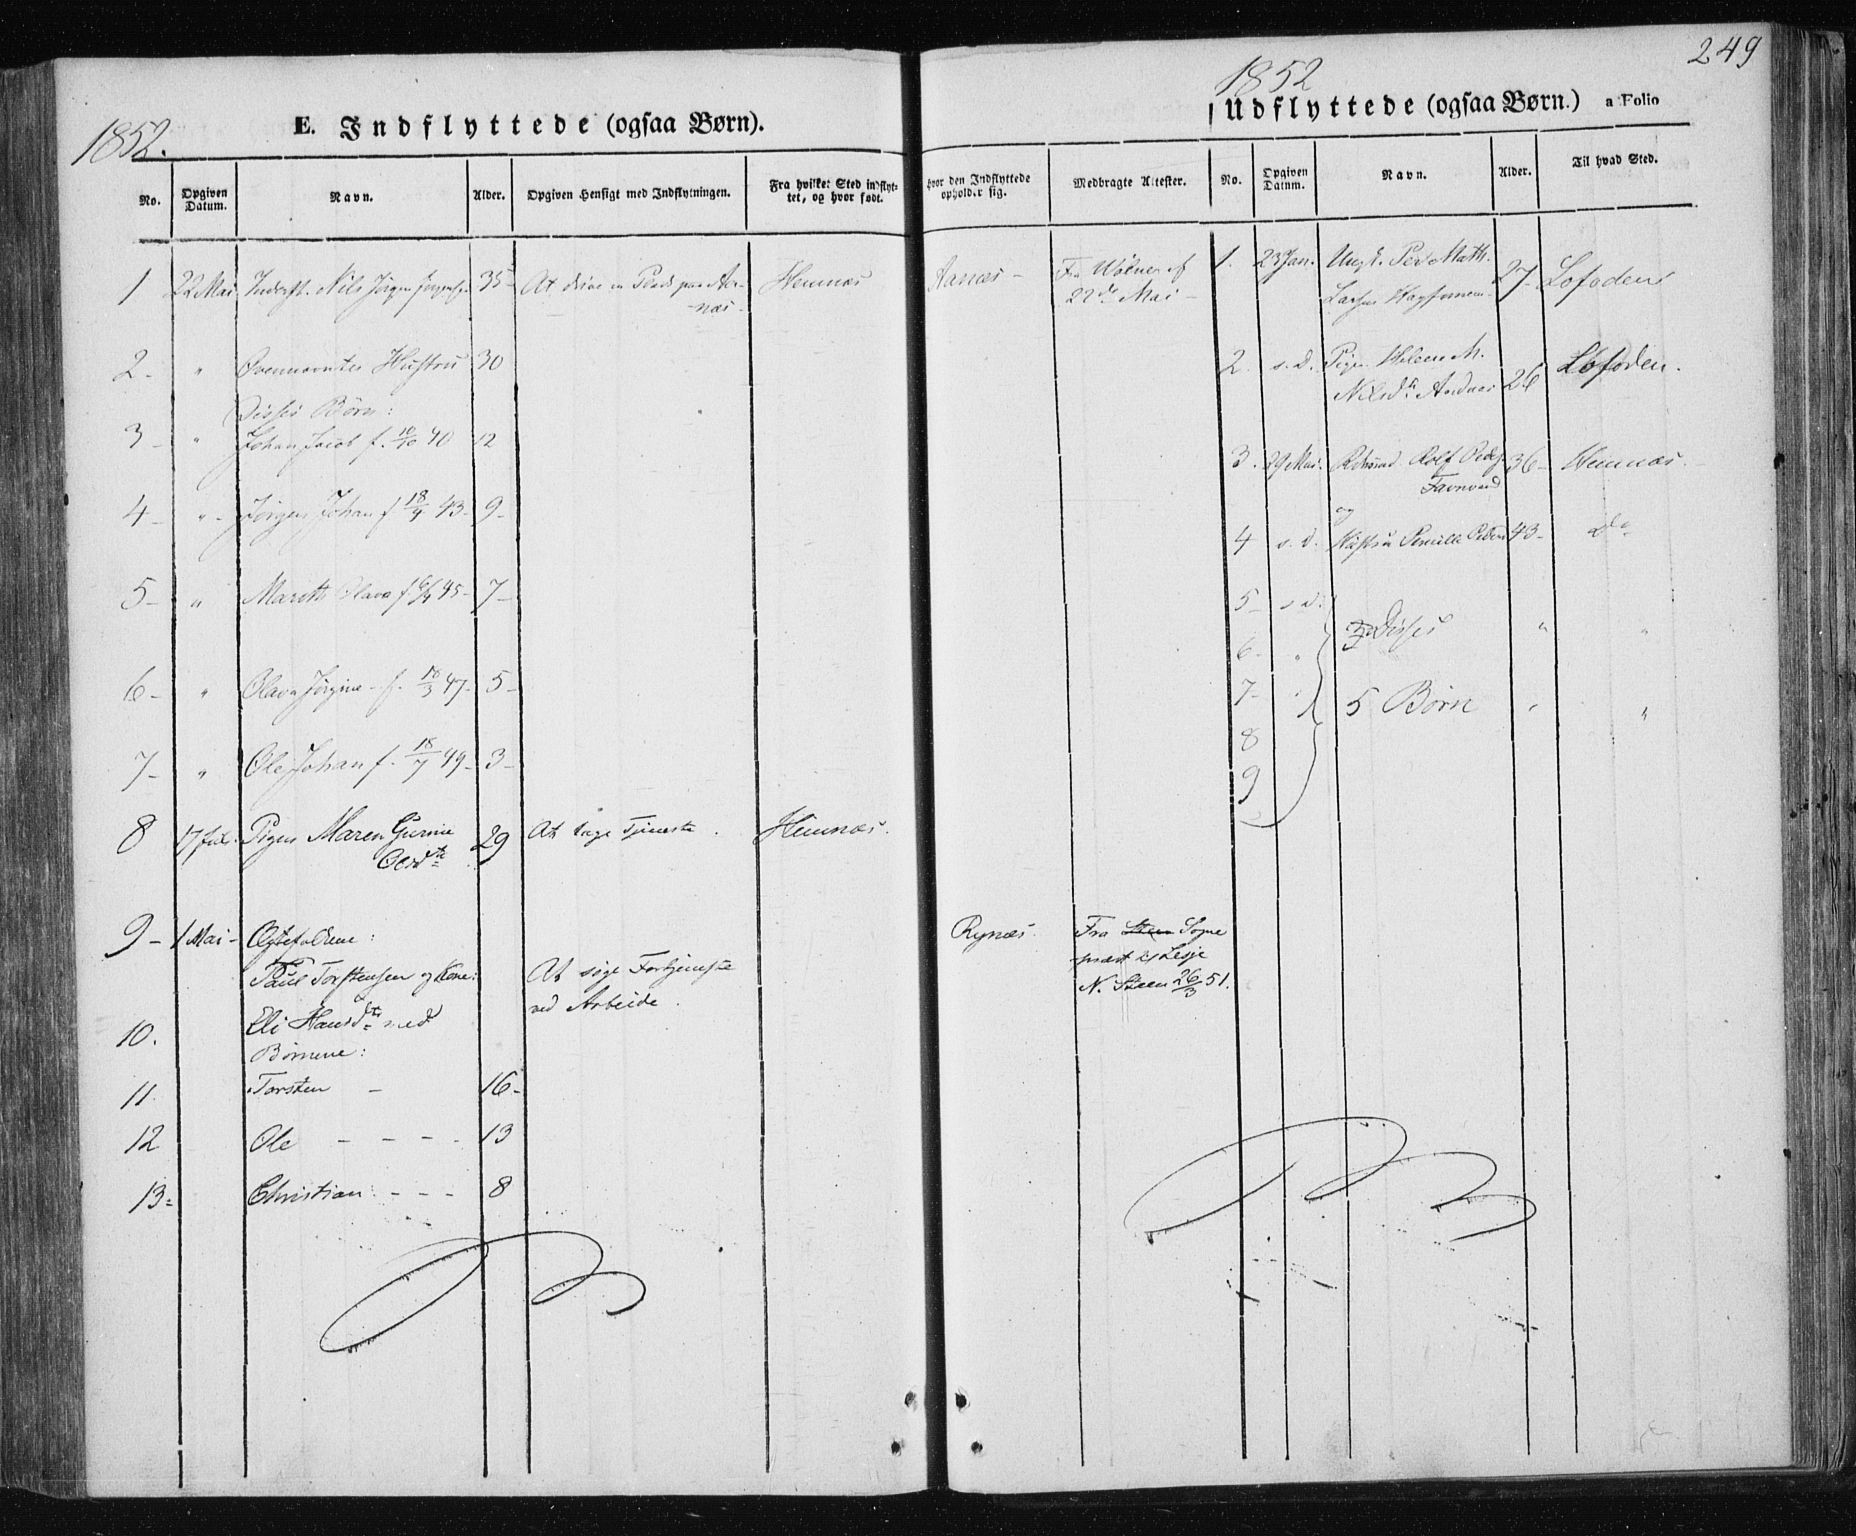 249
1852.
E. Indflyttede (ogsaa Børn).
No.
Opgiven Datum.
Navn.
Alder.
Opgiven Hensigt med Indflytningen.
Fra hvilket Sted indflyt-
tet, og hvor født.
hvor den Indflyttede
opholder sig.
Medbragte Attester.
1 22 Mai Nils Jörgen 35 At drive en Plads paa Ar- Hemnæs Arnæs - Fra af
næs. 22de Mai -
2 - " Ovennævntes Hustru 30
Disses Börn:
3 - " Johan Jacob f. 10/10 40 12
4 - " - Jörgen Johan f 18/9 43 - 9 -
5 - " Mareth Olava f. 6/4 45 - 7 -
6 - " Olava Jörgine - f. 18/3 47 - 5 -
7 - " Ole Johan f. 18/7 49 - 3 -
8 17 Juli Pigen Maren Gurine 29 At tage Tjeneste. Hemnæs.
Olsdtr
9 - 1 Mai - Ægtefolkene: Rynæs. Fra Steen Sogne
Paul Torstensen og Kone: At söge Fortjeneste præst til Lesje
ved Arbeide. N. Steen 26/3 51.
10. Eli Hansdtr med
Börnene:
11. Torsten - 16 -
12 Ole - - - - 13
13 - Christian: - - - 8
1852
Udflyttede (ogsaa Børn.)
a Folio
No.
Opgiven Datum.
Navn.
Alder.
Til hvad Sted.
1. 23 Jan. Ungk. Peder Math. 27 - Lofoden
2. s. d. Pigen Helene M. 26 Lofoden.
Nilsdtr
3. 29 Mai. Rolf 36 - Hemnæs.
og
4 s. d. Hustru Pernille 43 - do
5 - s d.
6 - " Disses " "
7 - " 5 Börn " "
8
9